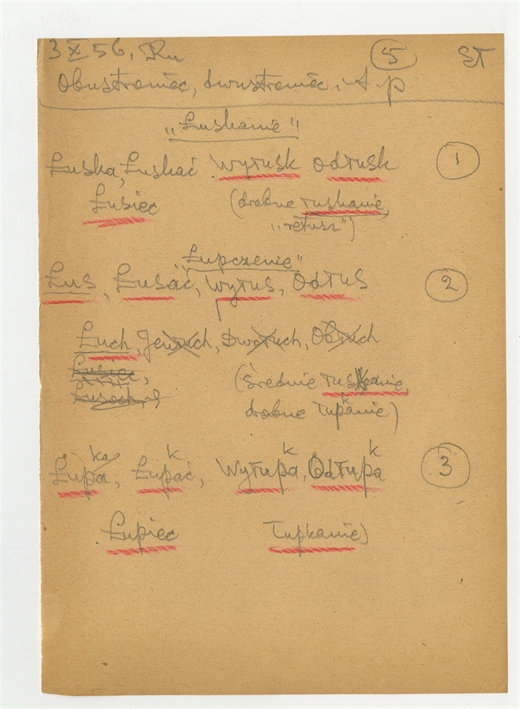 3 X 56, Ru (5) ST
Obustroniec, dwustroniec, i t. p
„Łuskanie"
Łuska, Łuskać Wyłusk Odłusk (1)
Łusiec (drobne łuskanie,
„retusz")
„Łupczenie"
Łus, Łusać, Wyłus, Odłus (2)
Łuch, Dwułuch, Obłuch
Łusiec, (średnie
drobne łupkanie)
Łupka, Łupkać, Wyłupk, Odłupk (3)
Łupiec łupkanie)